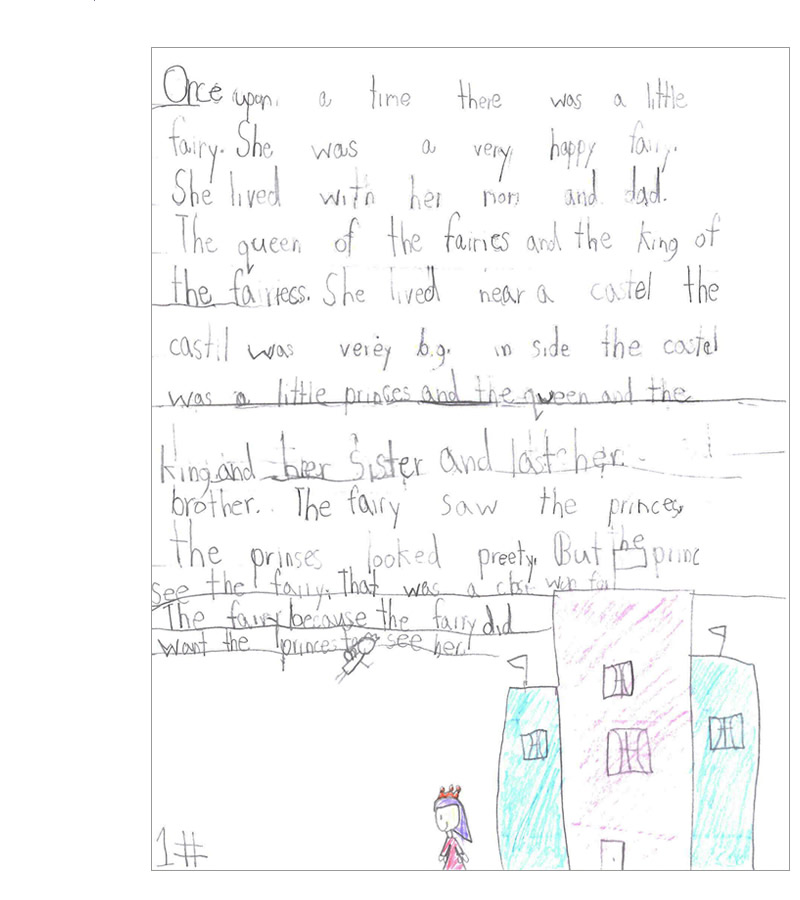 Once upon a time there was a little
fairy. She was a very happy fairy.
She lived with her mom and dad.
The queen of the fairies and the king of
the fairiess. She lived near a castel the
castil was verey big. in side the costel
was a little princes and the qween and the
king and her Sister and last her.
brother. The fairy saw the princes,
the prinses looked preety. But the princ
see the fairy. That was a
The fairy because the fairy did
want the princes to see her!
1#